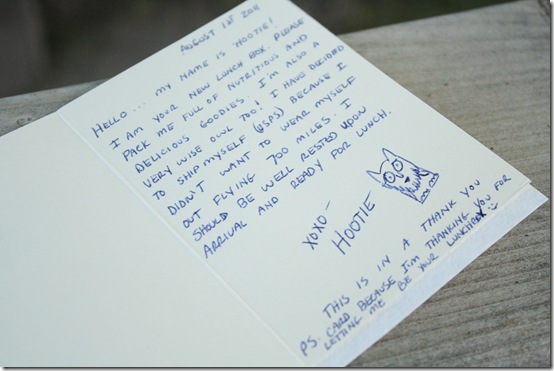 AUGUST 1ST 2011
HELLO.... MY NAME IS HOOTIE!
I AM YOUR NEW LUNCH BOX. PLEASE
PACK ME FULL OF NUTRITIOUS AND
DELICIOUS GOODIES. I'M ALSO A
VERY WISE OWL TOO! I HAVE DECIDED
TO SHIP MYSELF (USPS) BECAUSE I
DIDN'T WANT TO WEAR MYSELF
OUT FLYING 700 MILES. I
SHOULD BE WELL RESTED UPON
ARRIVAL AND READY FOR LUNCH.
XOXO-
HOOTIE
PS. THIS IS IN A THANK YOU
CARD BECAUSE I'M THANKING YOU FOR
LETTING ME BE YOUR LUNCHBOX